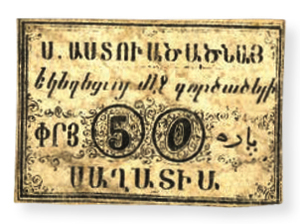 Ս. ԱՍՏՈՒԱԾԱԾՆԱՅ
եկեղեցւոյ մէջ գործածելի
ՓՐՅ 50 پاره
ՍԱՂԱՏԻԱ